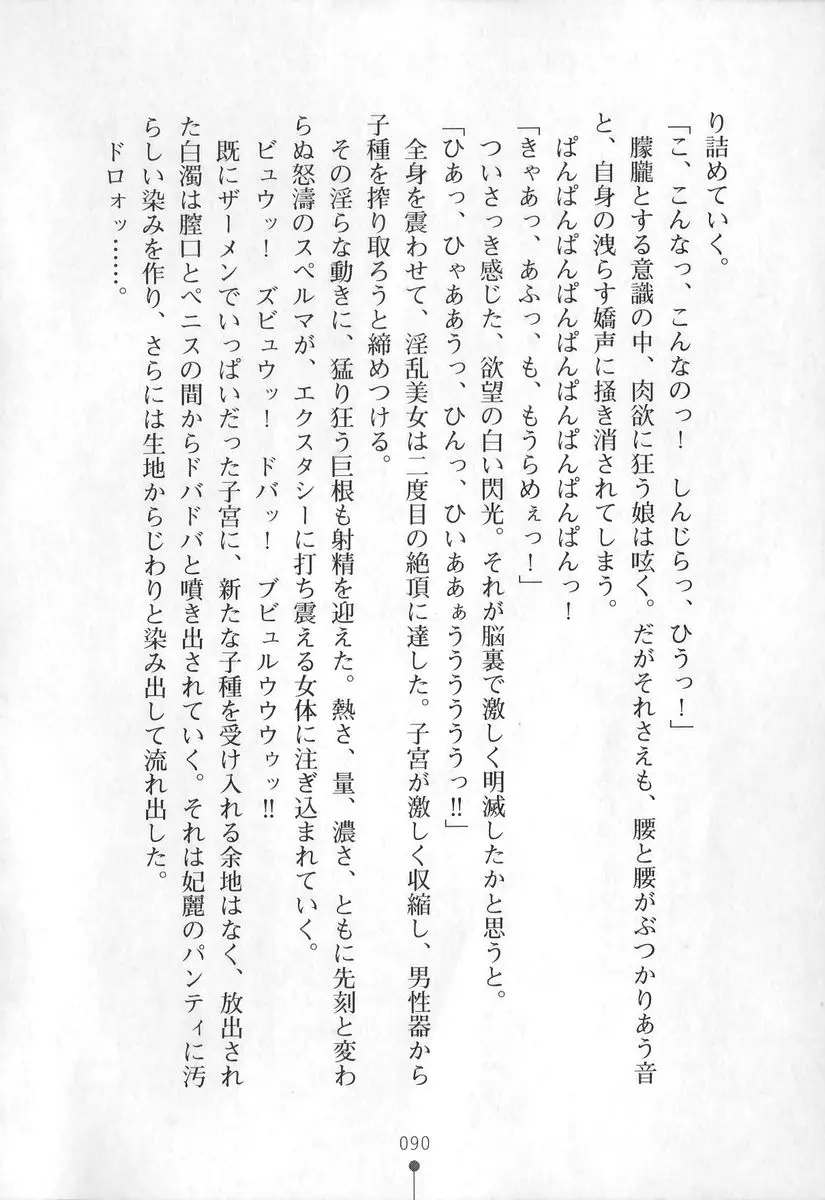 り詰めていく。
「こ、こんなっ、こんなのっ！　しんじらっ、ひうっ！」
朦朧とする意識の中、肉欲に狂う娘は呟く。だがそれさえも、腰と腰がぶつかりあう音
と、自身の洩らす嬌声に掻き消されてしまう。
ぱんぱんぱんぱんぱんぱんぱんぱんっ！
「きゃあっ、あふっ、も、もうらめぇっ！」
ついさっき感じた、欲望の白い閃光。それが脳裏で激しく明滅したかと思うと。
「ひあっ、ひゃああうっ、ひんっ、ひいああぁうううううっ!!」
全身を震わせて、淫乱美女は二度目の絶頂に達した。子宮が激しく収縮し、男性器から
子種を搾り取ろうと締めつける。
その淫らな動きに、猛り狂う巨根も射精を迎えた。熱さ、量、濃さ、ともに先刻と変わ
らぬ怒濤のスペルマが、エクスタシーに打ち震える女体に注ぎ込まれていく。
ビュウッ！　ズビュウッ！　ドバッ！　ブビュルウウウゥッ!!
既にザーメンでいっぱいだった子宮に、新たな子種を受け入れる余地はなく、放出され
た白濁は膣口とペニスの間からドバドバと噴き出されていく。それは妃麗のパンティに汚
らしい染みを作り、さらには生地からじわりと染み出して流れ出した。
ドロォッ……。
090